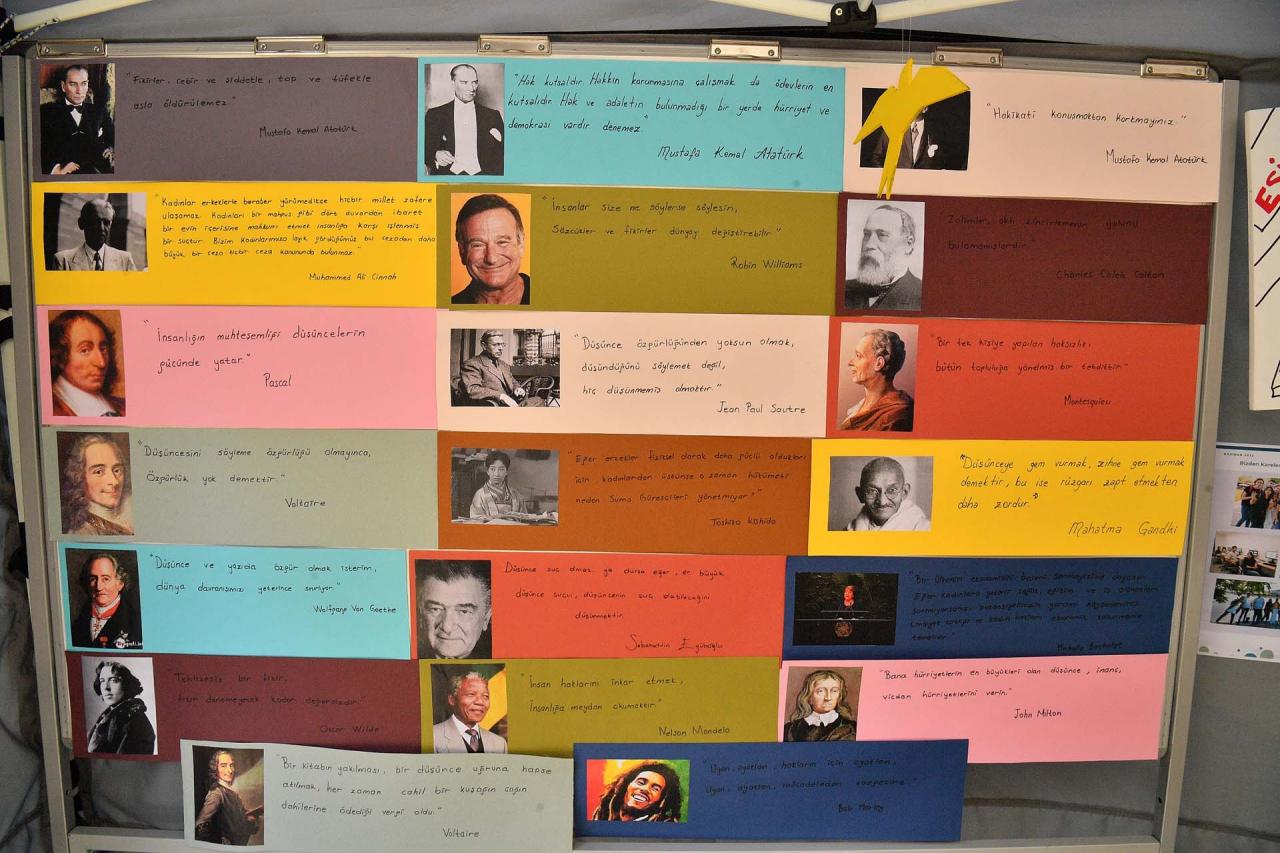 "Fikirler, cebir ve şiddetle, top ve tüfekle
asla öldürülemez."
Mustafa Kemal Atatürk
"Hak kutsaldır. Hakkın korunmasına çalışmak da ödevlerin en
kutsalıdır. Hak ve adaletin bulunmadığı bir yerde hürriyet ve
demokrasi vardır denemez."
Mustafa Kemal Atatürk
"Hakikati konuşmaktan korkmayınız."
Mustafa Kemal Atatürk
"Kadınlar erkeklerle beraber yürümedikçe hiçbir millet zafere
ulaşamaz. Kadınları bir mahpus gibi dört duvardan ibaret
bir evin içerisine mahkum etmek insanlığa karşı işlenmiş
bir suçtur. Bizim kadınlarımıza layık gördüğümüz bu cezadan daha
büyük bir ceza hiçbir ceza kanununda bulunmaz."
Muhammed Ali Cinnah
"İnsanlar size ne söylerse söylesin,
Sözcükler ve fikirler dünyayı değiştirebilir."
Robin Williams
Zalimler, aklı zincirlemenin yolunu
bulamamışlardır."
Charles Caleb Colton
"İnsanlığın muhteşemliği düşüncelerin
gücünde yatar."
Pascal
"Düşünce özgürlüğünden yoksun olmak,
düşündüğünü söylemek değil,
hiç düşünmemiş olmaktır."
Jean Paul Sautre
"Bir tek kişiye yapılan haksızlık,
bütün topluluğa yönelmiş bir tehdittir."
Montesquieu
"Düşüncesini söyleme özgürlüğü olmayınca,
Özgürlük yok demektir."
Voltaire
"Eğer erkekler fiziksel olarak daha güçlü oldukları
için kadınlardan üstünse o zaman hükümeti
neden Sumo Güreşçileri yönetmiyor?"
Toshiko Kishida
"Düşünceye gem vurmak, zihne gem vurmak
demektir, bu ise rüzgarı zapt etmekten
daha zordur."
Mahatma Gandhi
"Düşünce ve yazıda özgür olmak isterim,
dünya davranışımızı yeterince sınırlıyor."
Wolfgang Von Goethe
Düşünce suç olmaz ya olursa eğer, en büyük
düşünce suçu, düşüncenin suç olabileceğini
düşünmektir.
Sabahattin Eyüboğlu
"Bir ülkenin ekonomisini
Eğer kadınlara
"Tehlikesiz bir fikir,
fikir denemeyecek kadar değersizdir."
Oscar Wilde
"İnsan haklarını inkar etmek,
İnsanlığa meydan okumaktır."
Nelson Mandela
"Bana hürriyetlerin en büyükleri olan düşünce, inanç,
vicdan hürriyetlerini verin."
John Milton
"Bir kitabın yakılması, bir düşünce uğruna hapse
atılmak, her zaman cahil bir kuşağın çağın
dahilerine ödediği vergi oldu."
Voltaire
"Uyan, ayaklan, hakların için ayaklan,
Uyan, ayaklan, mücadeleden vazgeçme."
Bob Marley
ESİ
Bizden Kareler